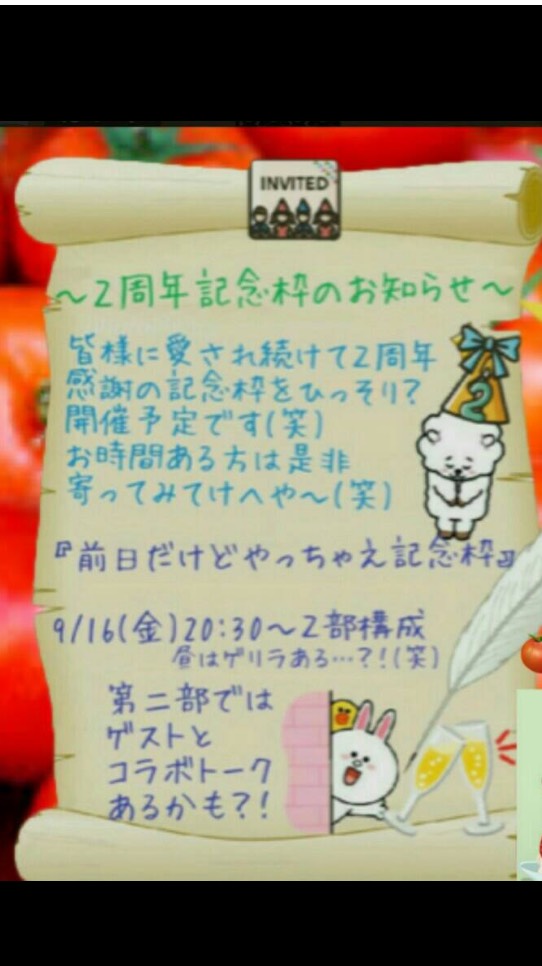 INVITED
～2周年記念枠のお知らせ～
皆様に愛され続けて2周年
感謝の記念枠をひっそり?
開催予定です(笑)
お時間ある方は是非
寄ってみてけへや～(笑)
2
『前日だけどやっちゃえ記念枠』
9/16(金)20:30～2部構成
昼はゲリラある…?!(笑)
第二部では
ゲストと
コラボトーク
あるかも?!